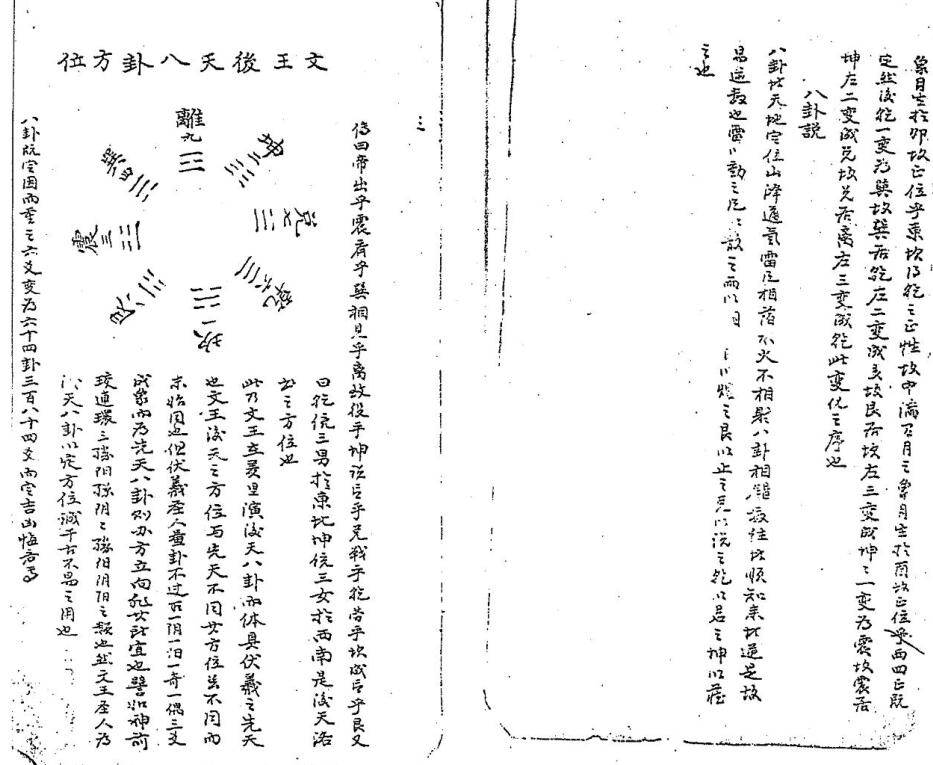 象月生於卯故正位乎東坎得乾之正性故中滿乃月之象月生於酉故正位乎西四正既
定然後乾一变为巽故巽居乾左二变成艮故艮居坎左三变成坤坤一变為震故震居
坤左二变成兑故兑居离左三变成乾此变化之序也
八卦説
八卦者天地定位山泽通氣雷風相薄水火不相射八卦相錯数往者順知来者逆是故
易逆数也雷以動之風以散之雨以日以烜之艮以止之兑以说之乾以君之坤以藏
之也
三
文王後天八卦方位
離九
坤二
兌七
乾六
坎一
艮八
震三
巽四
傳曰帝出乎震齊乎巽相見乎离致役乎坤说言乎兑戰乎乾劳乎坎成言乎艮又
曰乾統三男於東北坤統三女於西南是後天洛
書之方位也
此乃文王立羑里演後天八卦而体具伏羲之先天
也文王後天之方位与先天不同其方位虽不同而
未始同也但伏羲圣人畫卦不过一阴一阳一奇一偶三爻
成象而为先天八卦则办方立向乖其时宜也譬如神前
珓連環三擲阳擲阴阴擲阳阴阳之類也然文王圣人为
後天八卦以定方位誠千古不易之用也
八卦既定因而重之六爻变为六十四卦三百八十四爻而定吉凶悔吝焉